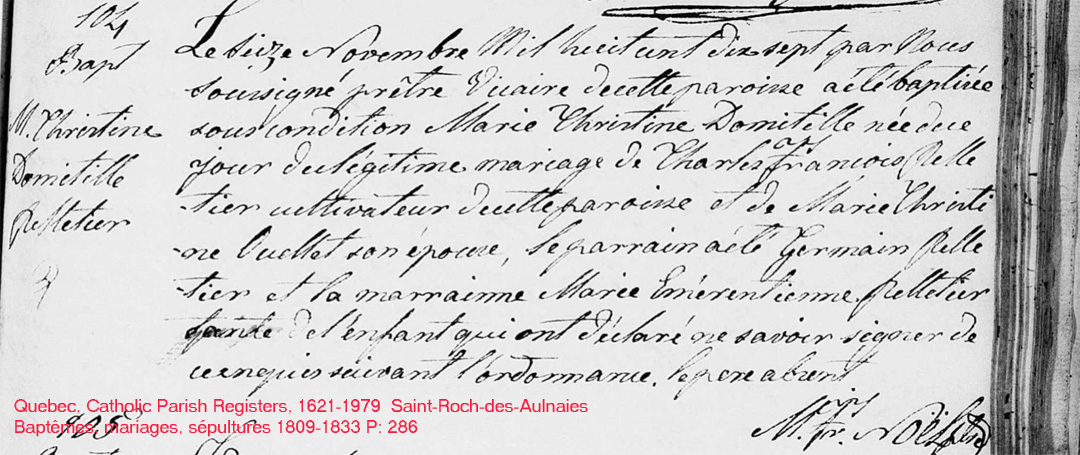 104
Bapt
M. Christine
Domitille
Pelletier
Le Seize Novembre Mil huit cent dix sept par Nous
soussigné prêtre Vicaire de cette paroisse a été baptisée
sous condition Marie Christine Domitille née du ce
jour du légitime mariage de Charles frs François Pelle
-tier cultivateur de cette paroisse et de Marie Christi
-ne Ouellet son épouse, le parrain a été Germain Pelle
-tier et la marrainne Marie Emérentienne Pelletier
tante de l'enfant qui ont déclaré ne savoir signer de
ce enquis suivant l'ordonnance. le pere absent
M. Fr. Noël Ptre
Quebec, Catholic Parish Registers, 1621-1979 Saint-Roch-des-Aulnaies
Baptêmes, mariages, sépultures 1809-1833 P: 286